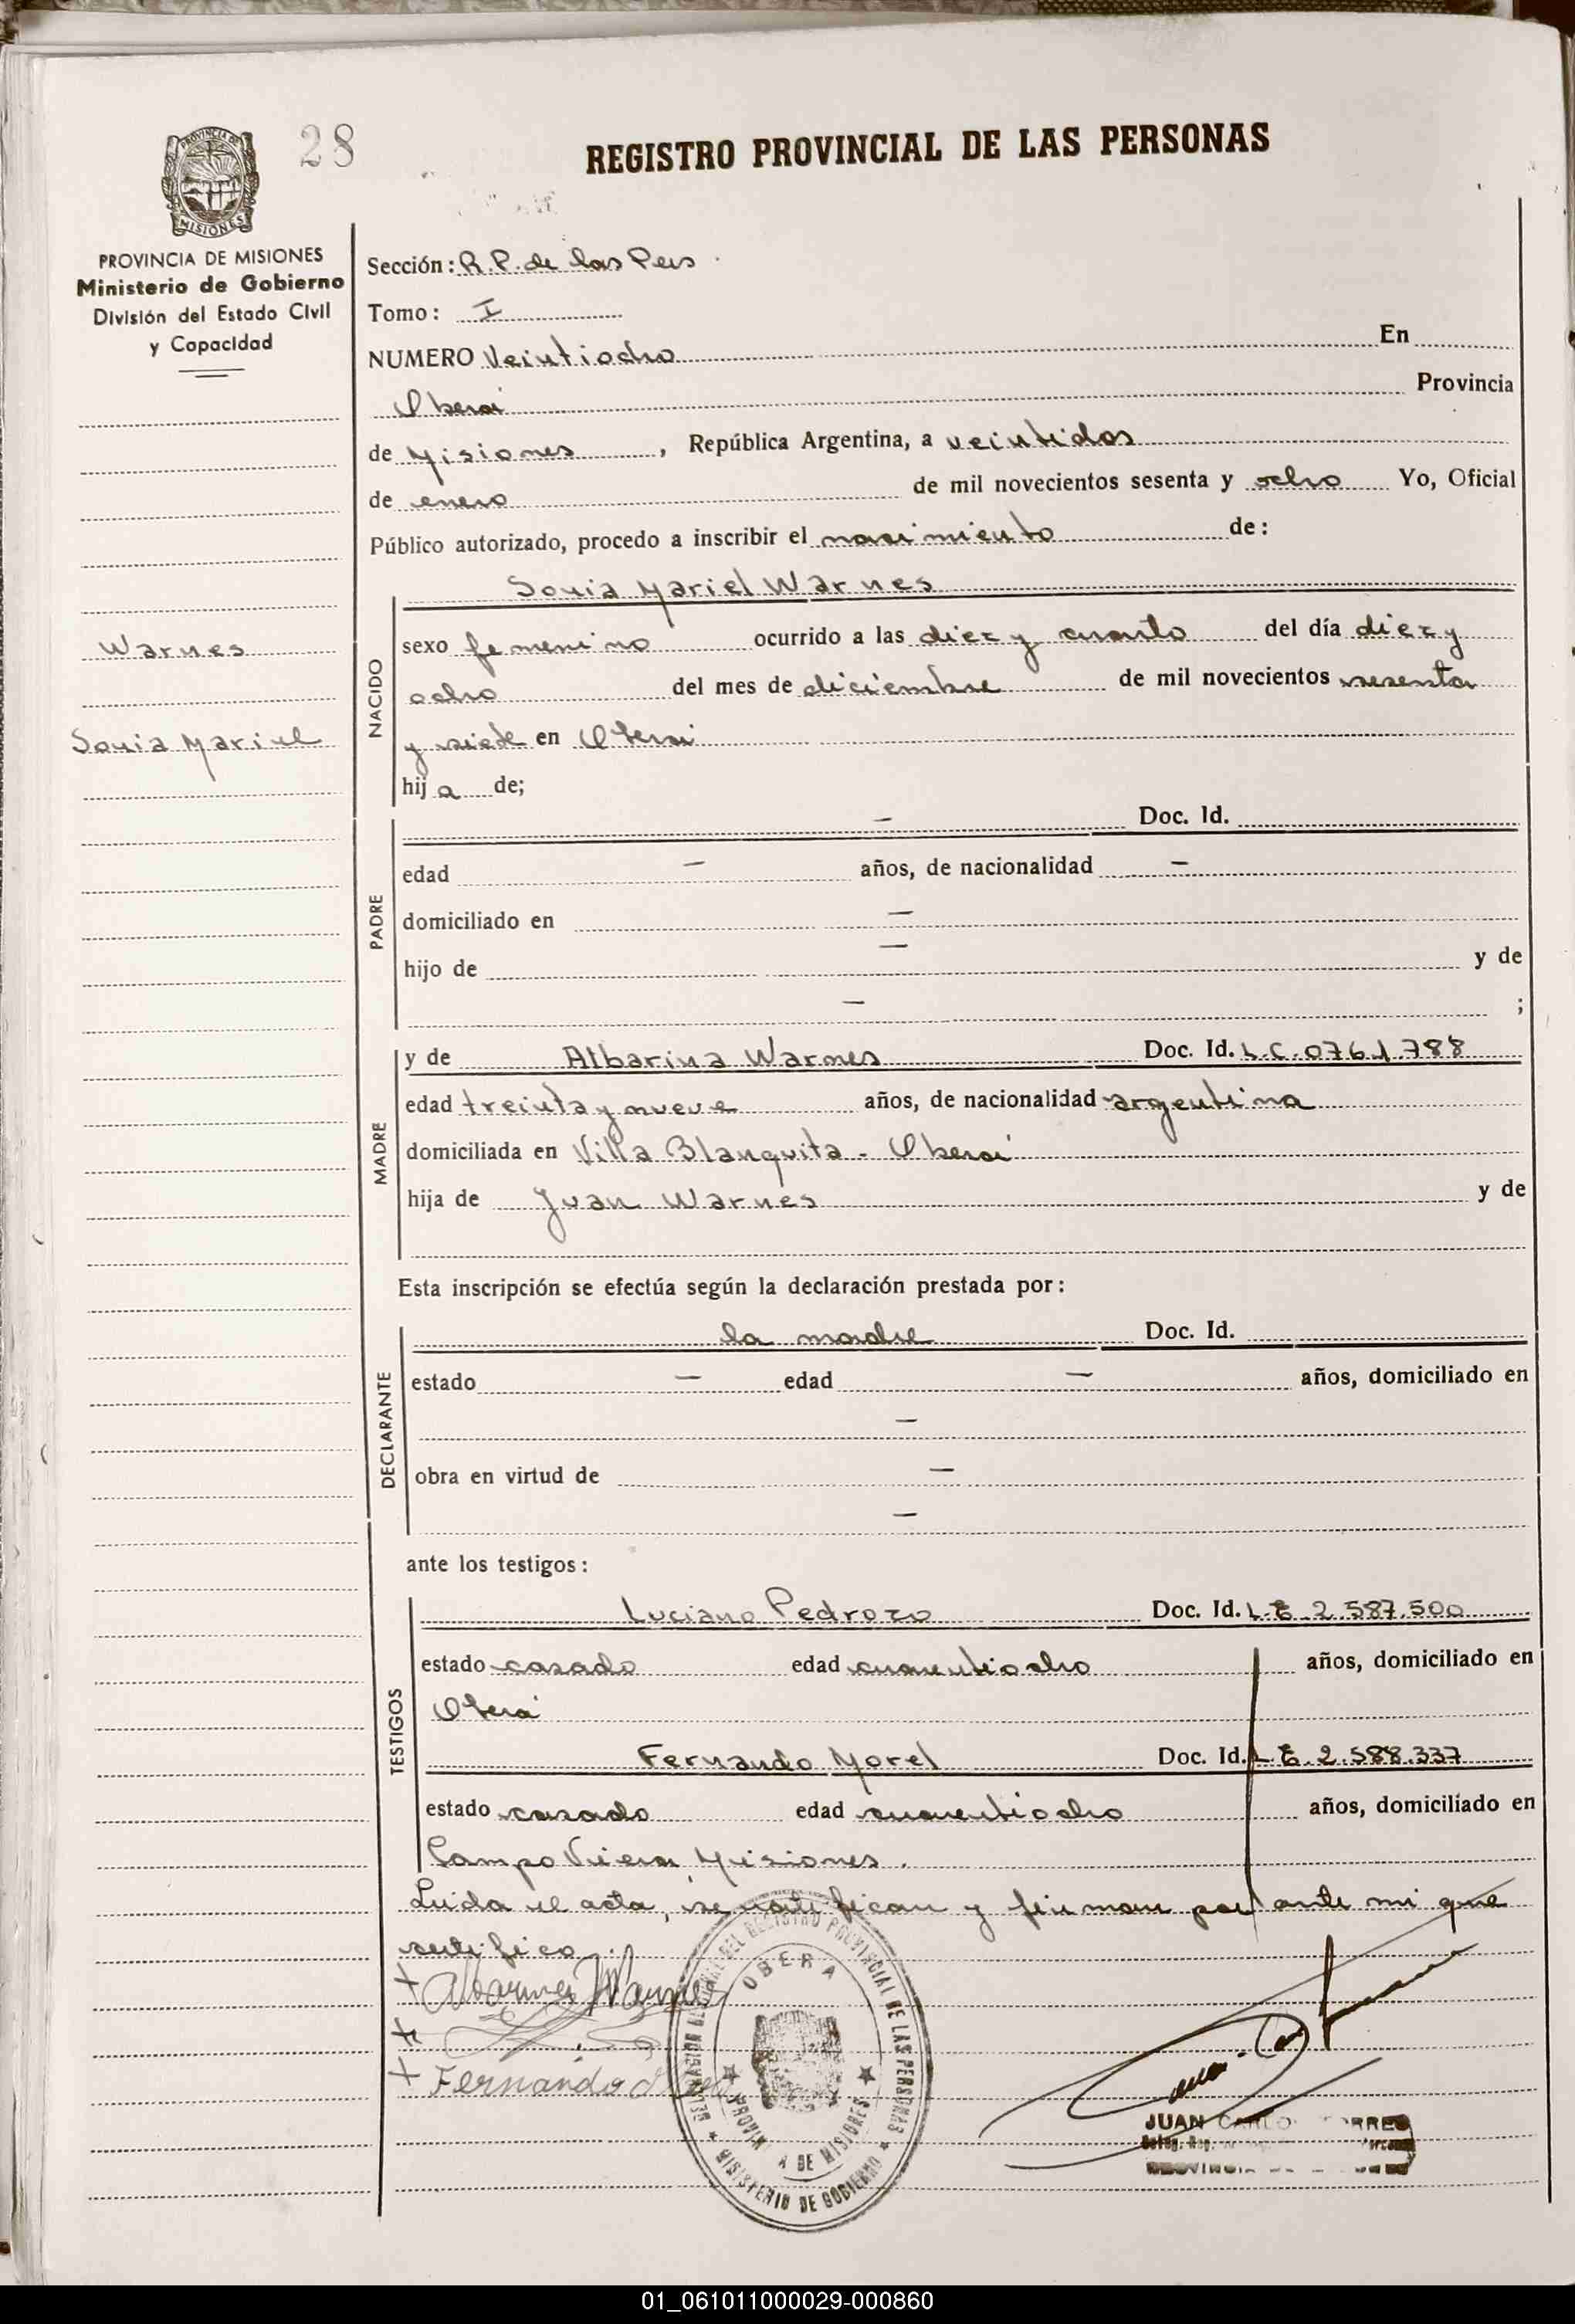 28
REGISTRO PROVINCIAL DE LAS PERSONAS
PROVINCIA DE MISIONES
Ministerio de Gobierno
División del Estado Civil
y Capacidad
Warnes
Sonia Mariel
Sección: R.P. de las Pers.
Tomo: I
NUMERO Veintiocho En
Oberá Provincia
de Misiones, República Argentina, a veintidos
de enero de mil novecientos sesenta y ocho Yo, Oficial
Público autorizado, procedo a inscribir el nacimiento de:
Sonia Mariel Warnes
NACIDO
sexo femenino ocurrido a las diez y cuarto del día diez y
ocho del mes de diciembre de mil novecientos sesenta
y siete en Oberá
hija de;
PADRE
— Doc. Id.
edad — años, de nacionalidad —
domiciliado en —
hijo de — y de
— ;
MADRE
y de Albarina Warnes Doc. Id. L.C. 0761.788
edad treinta y nueve años, de nacionalidad argentina
domiciliada en Villa Blanquita - Oberá
hija de Juan Warnes y de
Esta inscripción se efectúa según la declaración prestada por:
DECLARANTE
la madre Doc. Id.
estado — edad — años, domiciliado en
—
obra en virtud de —
—
ante los testigos:
TESTIGOS
Luciano Pedrozo Doc. Id. L.E 2.587.500
estado casado edad cuarentiocho años, domiciliado en
Oberá
Fernando Morel Doc. Id. L.E. 2.588.337
estado casado edad cuarentiocho años, domiciliado en
Campo Viera Misiones.
Leida el acta, se ratifican y firman por ante mi que
certifico.
+ Warnes
+
+ Fernando
DEL REGISTRO PROVINCIAL DE LAS PERSONAS
OBERA
PROVINCIA DE MISIONES
MINISTERIO DE GOBIERNO
JUAN CARLOS TORRES
01_061011000029-000860